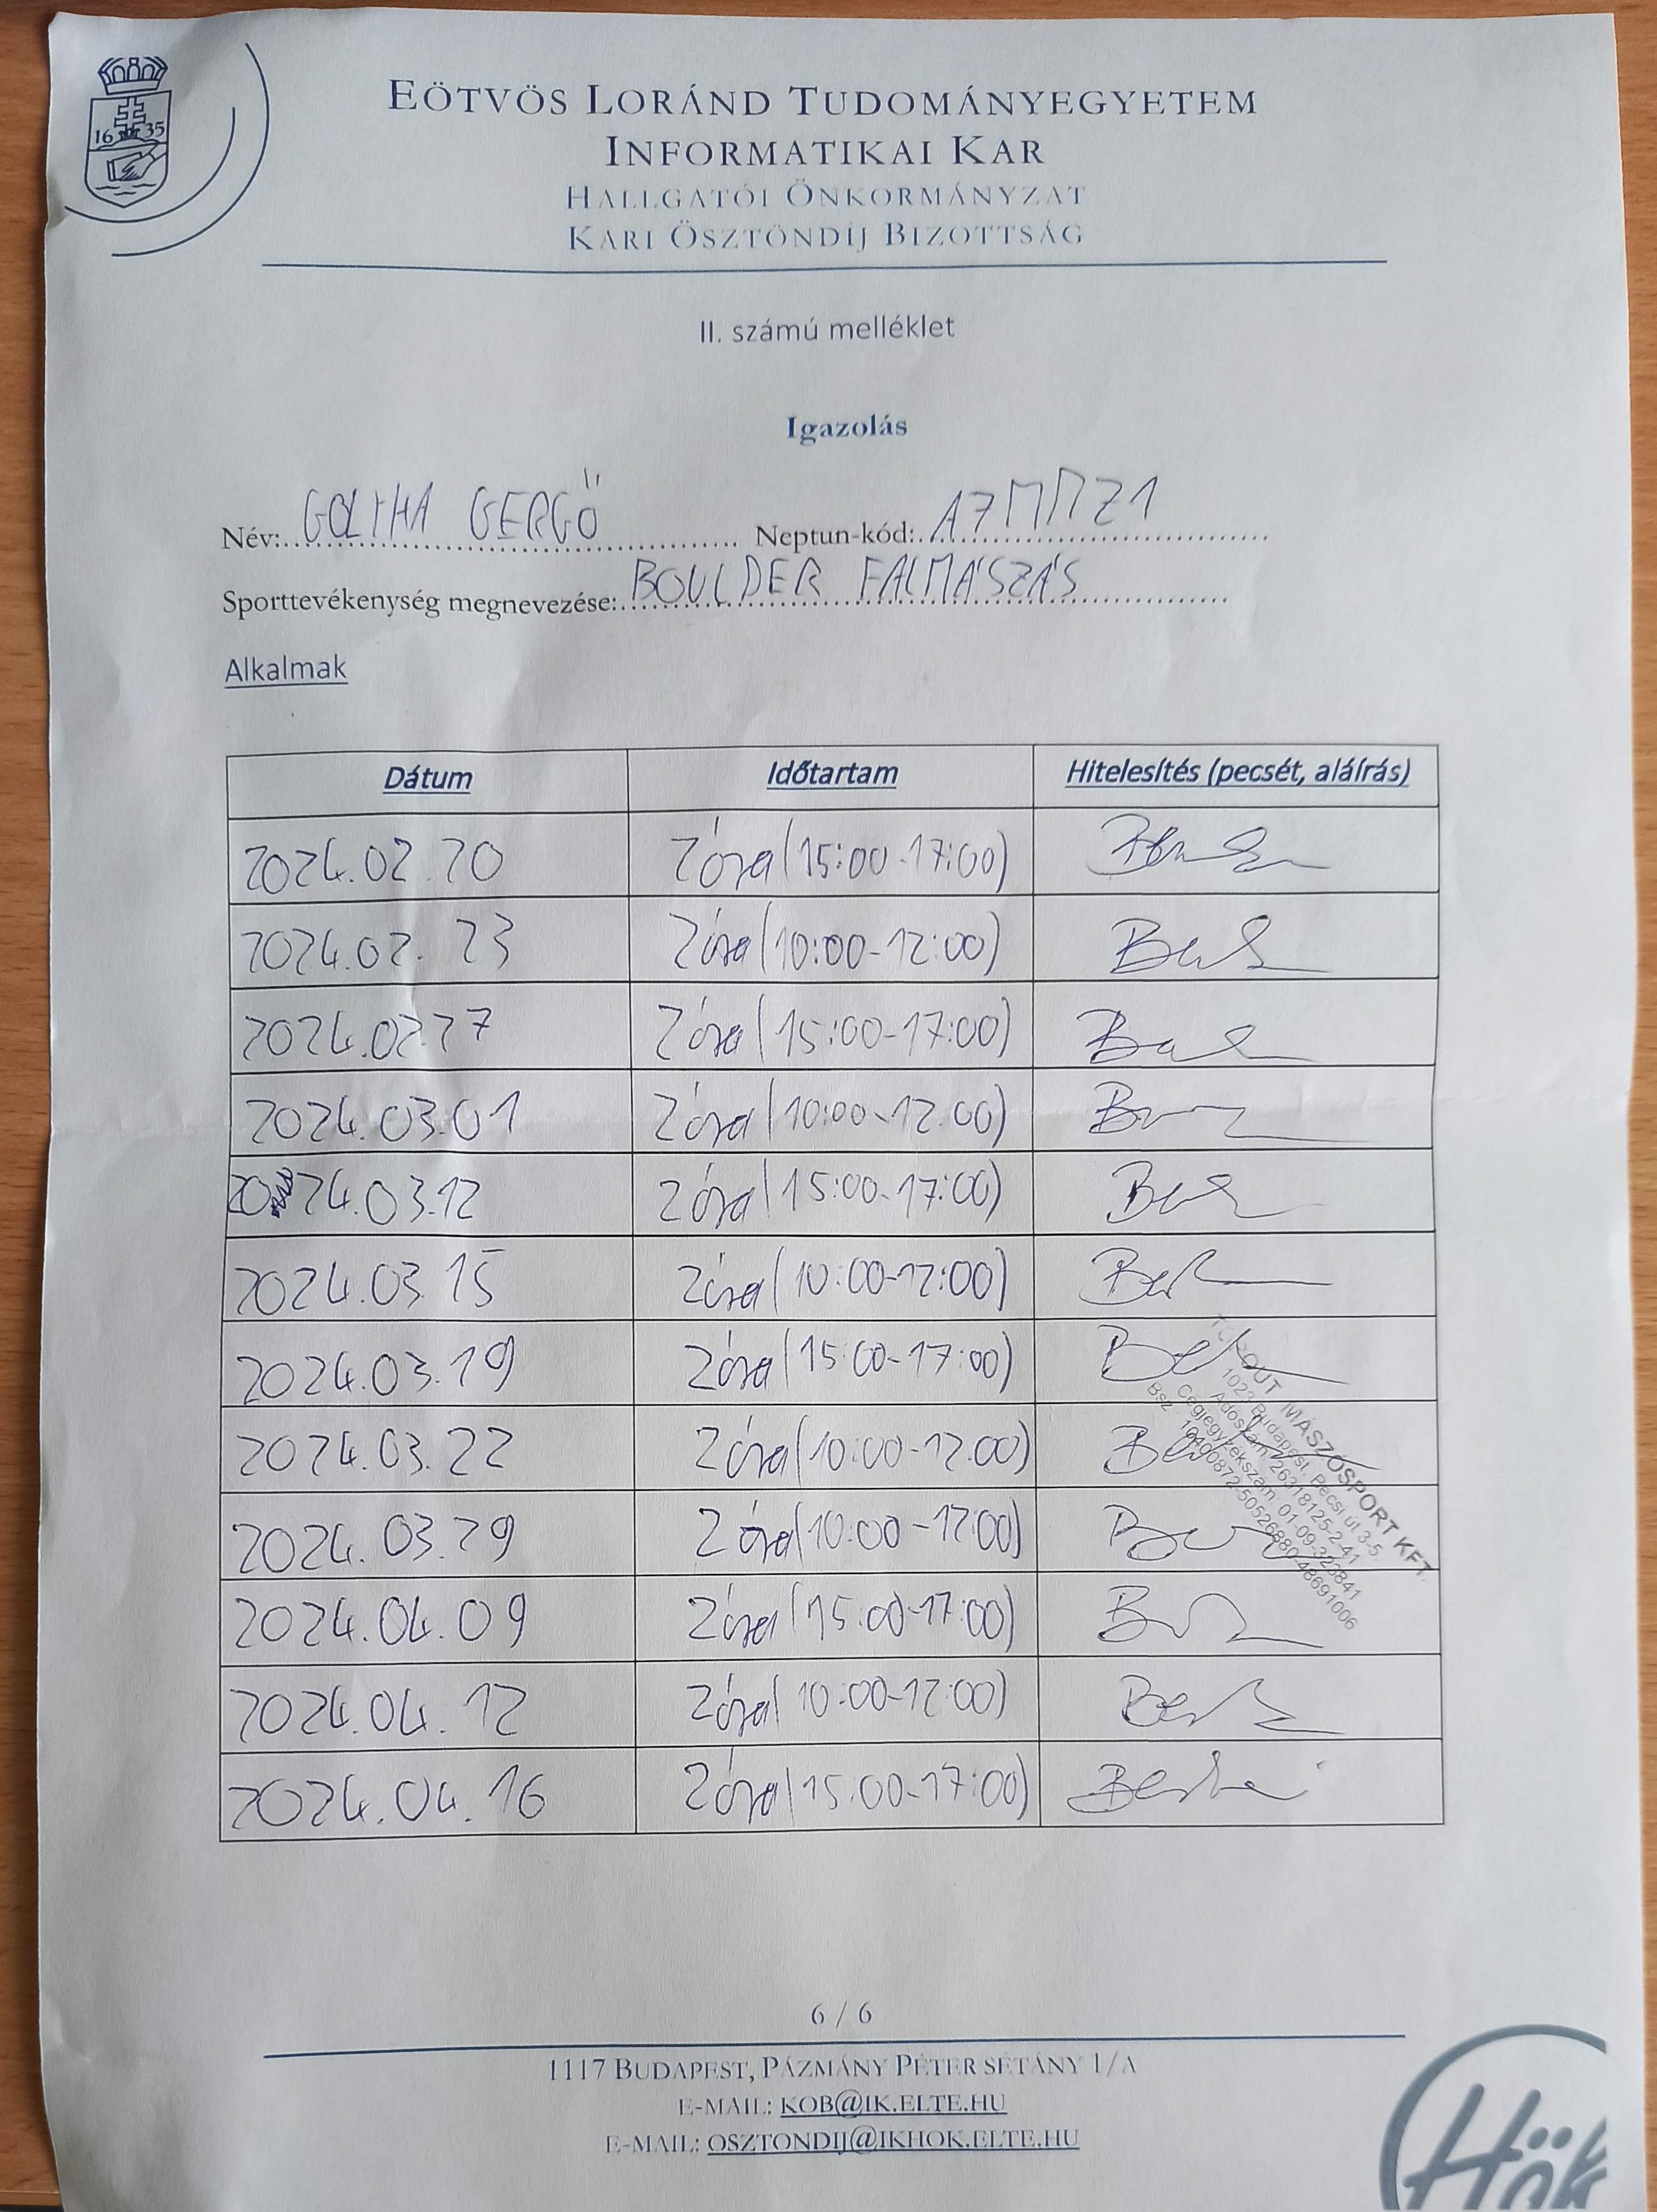 16 35
EÖTVÖS LORÁND TUDOMÁNYEGYETEM
INFORMATIKAI KAR
HALLGATÓI ÖNKORMÁNYZAT
KARI ÖSZTÖNDÍJ BIZOTTSÁG
II. számú melléklet
Igazolás
Név: GERGŐ Neptun-kód: A7MMZ1
Sporttevékenység megnevezése: BOULDER FALMÁSZÁS
Alkalmak
Dátum Időtartam Hitelesítés (pecsét, aláírás)
2024.02.20 2 óra (15:00-17:00)
2024.02.23 2 óra (10:00-12:00)
2024.02.27 2 óra (15:00-17:00)
2024.03.01 2 óra (10:00-12:00)
2024.03.12 2 óra (15:00-17:00)
2024.03.15 2 óra (10:00-12:00)
2024.03.19 2 óra (15:00-17:00)
2024.03.22 2 óra (10:00-12:00)
2024.03.29 2 óra (10:00-12:00)
2024.04.09 2 óra (15:00-17:00)
2024.04.12 2 óra (10:00-12:00)
2024.04.16 2 óra (15:00-17:00)
MÁSZÓSPORT KFT.
Budapest, Pécsi út 3-5.
Adószám: 26318125-2-41
Cégjegyzékszám: 01-09-323841
Bsz.
6 / 6
1117 BUDAPEST, PÁZMÁNY PÉTER SÉTÁNY 1/A
E-MAIL: KOB@IK.ELTE.HU
E-MAIL: OSZTONDIJ@IKHOK.ELTE.HU
Hök